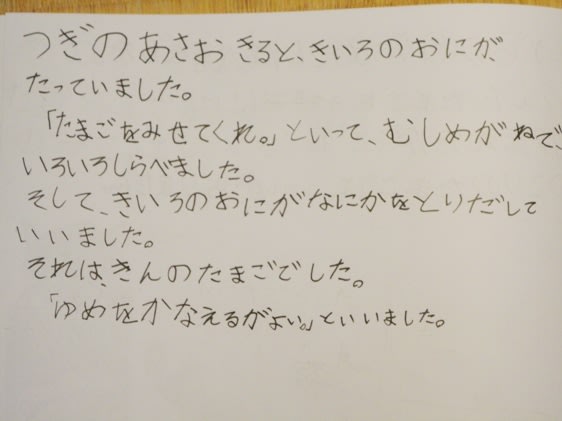 つぎのあさおきると、きいろのおにが、
たっていました。
「たまごをみせてくれ。」といって、むしめがねで、
いろいろしらべました。
そして、きいろのおにがなにかをとりだして
いいました。
それは、きんのたまごでした。
「ゆめをかなえるがよい。」といいました。